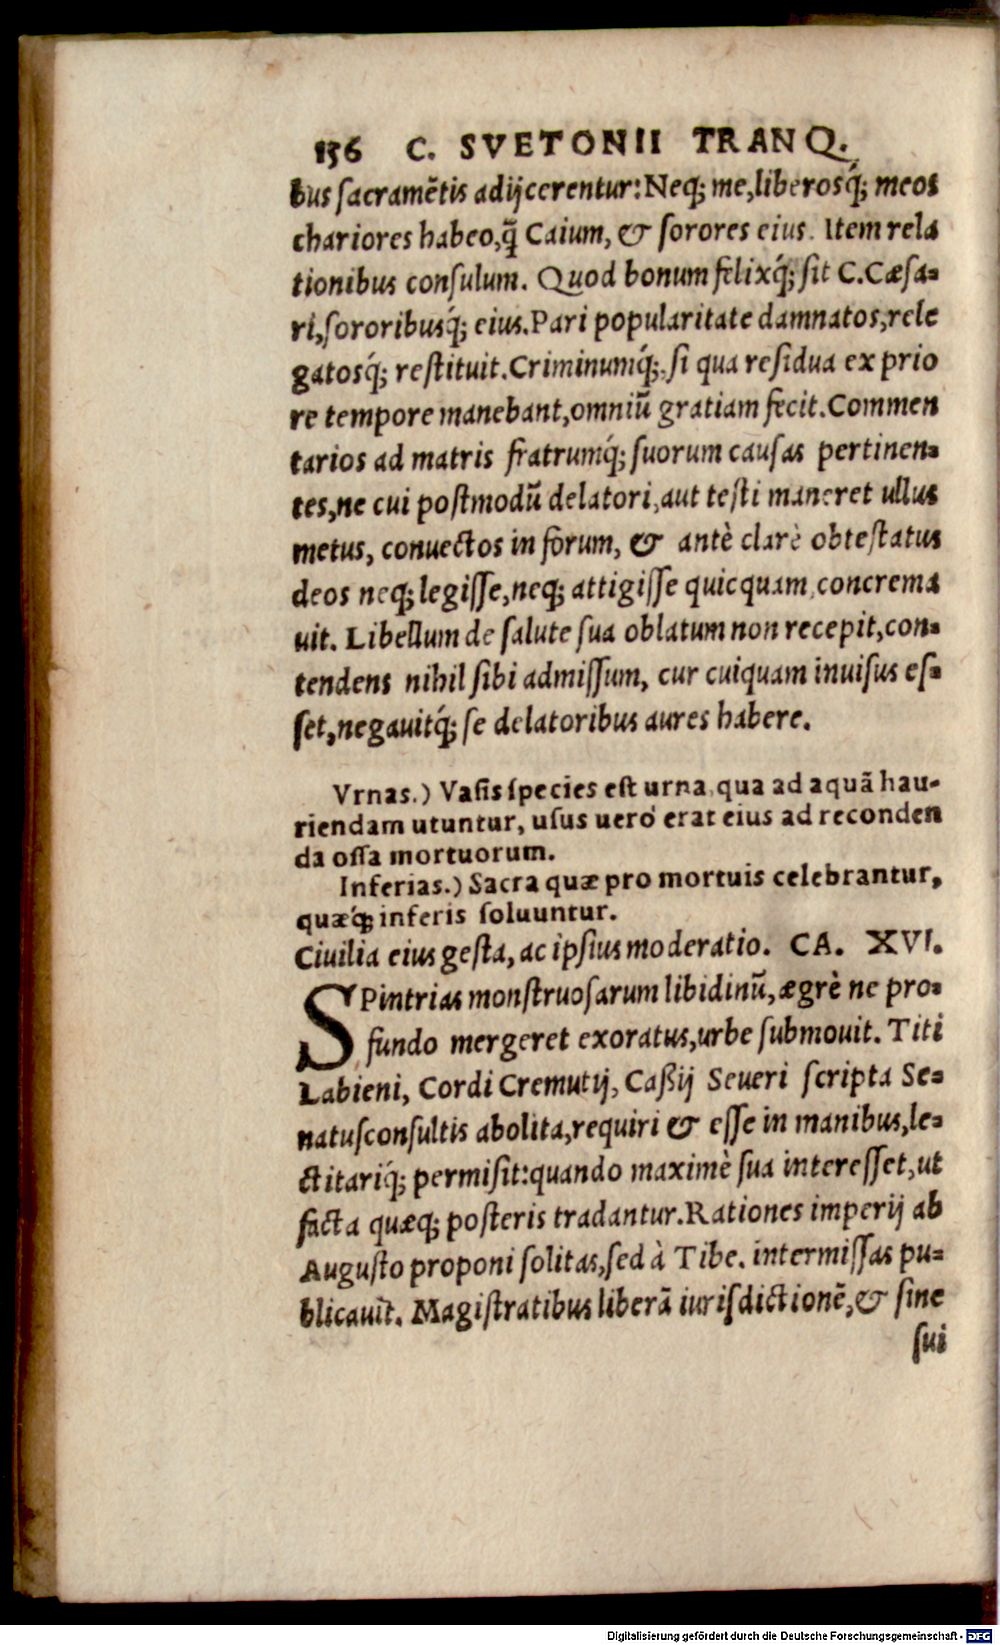 156 C. SVETONII TRANQ.
bus ſacramẽtis adijcerentur: Neq; me, liberosq́; meos
chariores habeo, q̃ Caium, & ſorores eius. Item rela
tionibus conſulum. Quod bonum felixq́; ſit C. Cæſa-
ri, ſororibusq́; eius. Pari popularitate damnatos, rele
gatosq́; reſtituit. Criminumq́;, ſi qua reſidua ex prio
re tempore manebant, omniũ gratiam fecit. Commen
tarios ad matris fratrumq́; ſuorum cauſas pertinen-
tes, ne cui poſtmodũ delatori, aut teſti maneret ullus
metus, conuectos in forum, & antè clarè obteſtatus
deos neq; legiſſe, neq; attigiſſe quicquam, concrema
uit. Libellum de ſalute ſua oblatum non recepit, con-
tendens nihil ſibi admiſſum, cur cuiquam inuiſus eſ-
ſet, negauitq́; ſe delatoribus aures habere.
Vrnas.) Vaſis ſpecies eſt urna, qua ad aquã hau-
riendam utuntur, uſus uerò erat eius ad reconden
da oſſa mortuorum.
Inferias.) Sacra quæ pro mortuis celebrantur,
quæq́; inferis ſoluuntur.
Ciuilia eius geſta, ac ipſius moderatio. CA. XVI.
SPintrias monſtruoſarum libidinũ, ægrè ne pro-
fundo mergeret exoratus, urbe ſubmouit. Titi
Labieni, Cordi Cremutij, Caßij Seueri ſcripta Se-
natuſconſultis abolita, requiri & eſſe in manibus, le-
ctitariq́; permiſit: quando maximè ſua intereſſet, ut
facta quæq; poſteris tradantur. Rationes imperij ab
Auguſto proponi ſolitas, ſed à Tibe. intermiſſas pu-
blicauit. Magiſtratibus liberã iuriſdictionẽ, & ſine
ſui
Digitalisierung gefördert durch die Deutsche Forschungsgemeinschaft - DFG